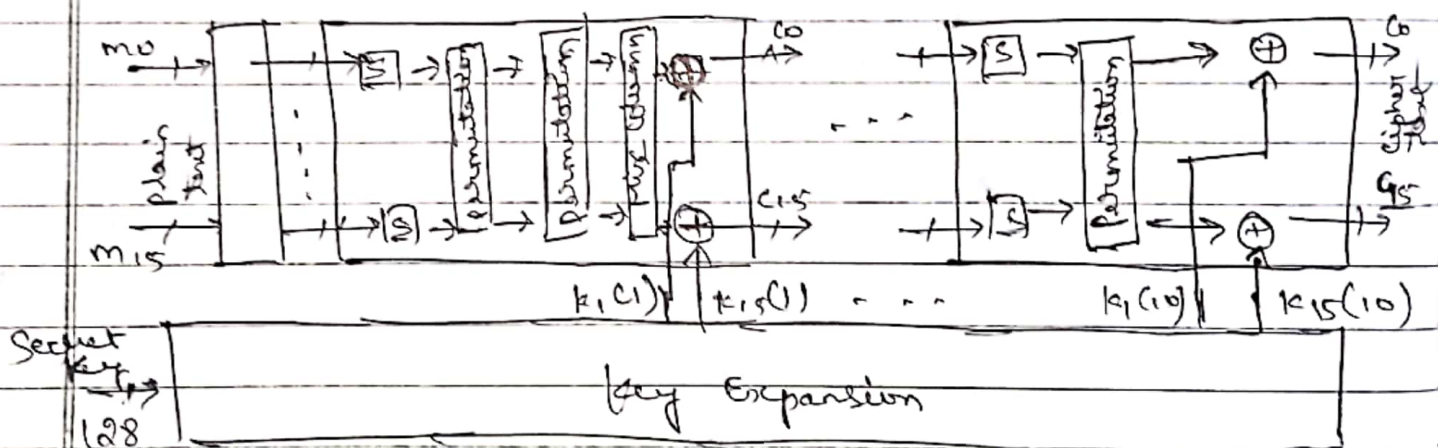 m0
plain
text
m15
S
S
permutation
permutation
Mix Column
C0
C15
. . .
S
S
Permitation
C0
cipher
Text
C15
k1(1)
k15(1)
. . .
k1(10)
k15(10)
Secret
key
128
Key Expansion